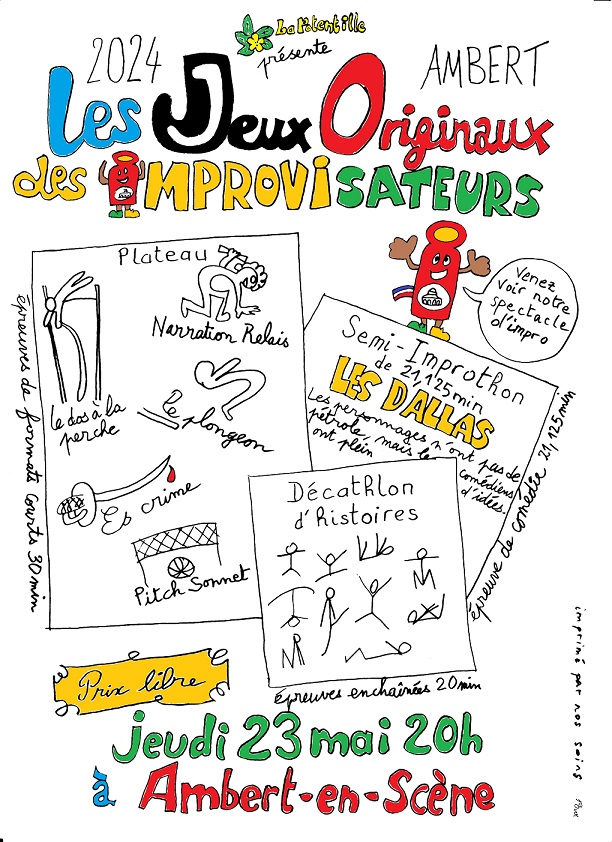 La Potentille
présente
2024
AMBERT
Les Jeux Originaux
des IMPROVISATEURS
Plateau
Narration Relais
le dos à la
perche
le plongeon
Es crime
Pitch Sonnet
épreuves de formats courts 30 min
Venez
voir notre
spectacle
d'impro
Semi-Improthon
de 21,125 min
LES DALLAS
Les personnages n'ont pas de
pétrole, mais les comédiens
ont plein d'idées.
épreuve de comédie 21,125 min
Décathlon
d'histoires
épreuves enchaînées 20 min
Prix libre
jeudi 23 mai 20h
à Ambert-en-Scène
imprimé par nos soins